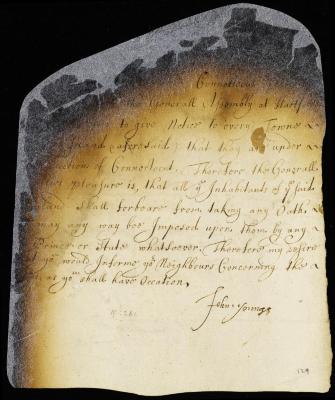 Connoticut
the Generall Assembly at Hartf
to give Notice to every Towne
Island aforesaid; that they are under
tection of Connoticut, Therefore the Generall
pleasure is, that all yᵉ Inhabitants of yᵉ said
shall forbeare from, taking any Oath
may any way bee Imposed upon them by any
Prince or State whatsoever, Therefore my desire
yᵗ yᵘ would Informe yoʳ Neighbours Concerning the
as yᵘ shall have Occation,
John Youngs
129